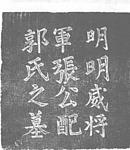 明明威將
軍張公配
郭氏之墓